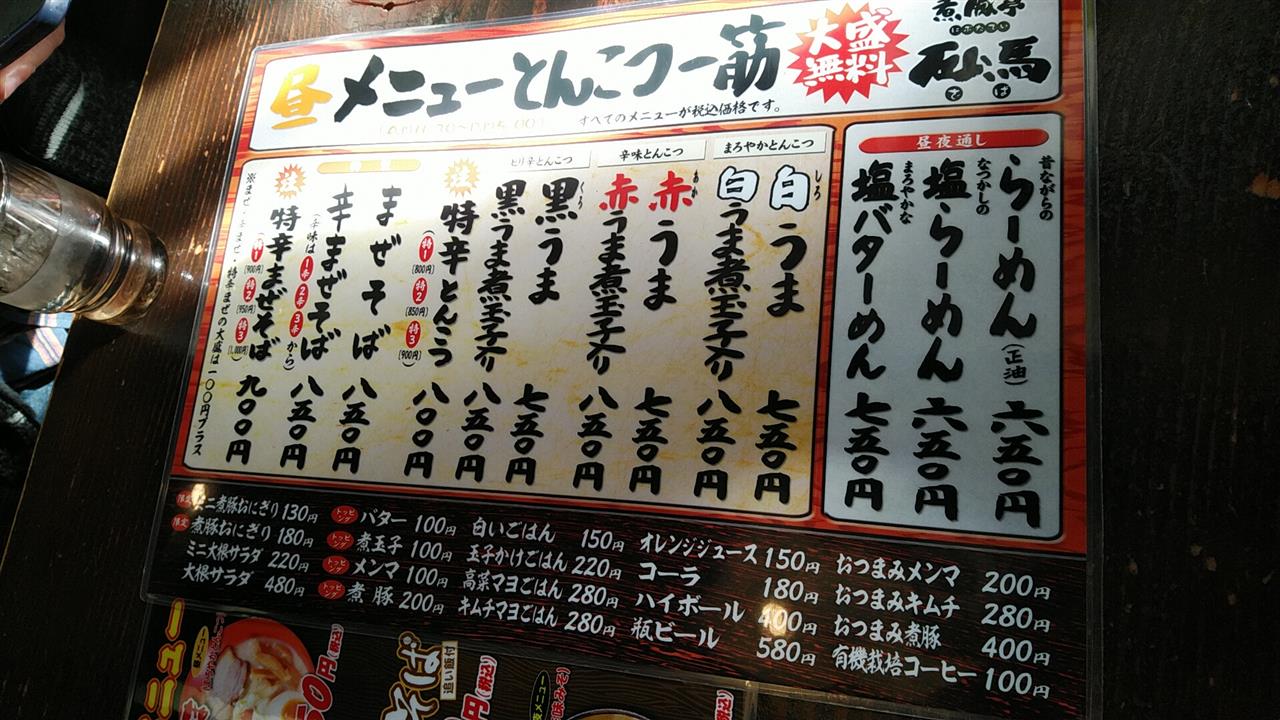 昼メニューとんこつ一筋
大盛無料
煮豚亭
にぶたてい
石山馬
でば
すべてのメニューが税込価格です。
昼夜通し
昔ながらの
らーめん(正油) 六五〇円
なつかしの
塩らーめん 六五〇円
まろやかな
塩バターめん 七五〇円
まろやかとんこつ
白うま 七五〇円
しろ
白うま煮玉子入り 八五〇円
辛味とんこつ
赤うま 七五〇円
あか
赤うま煮玉子入り 八五〇円
ピリ辛とんこつ
黒うま 七五〇円
くろ
黒うま煮玉子入り 八五〇円
特辛とんうま 八〇〇円
特1 (800円) 特2 (850円) 特3 (900円)
まぜそば 八五〇円
辛まぜそば 八五〇円
(辛味は1辛2辛3辛から)
特辛まぜそば 九〇〇円
特1 (900円) 特2 (950円) 特3 (1,000円)
※まぜ・辛まぜ・特辛まぜの大盛は一〇〇円プラス
限定 ミニ煮豚おにぎり 130円
限定 煮豚おにぎり 180円
ミニ大根サラダ 220円
大根サラダ 480円
トッピング バター 100円
トッピング 煮玉子 100円
トッピング メンマ 100円
トッピング 煮豚 200円
白いごはん 150円
玉子かけごはん 220円
高菜マヨごはん 280円
キムチマヨごはん 280円
オレンジジュース 150円
コーラ 180円
ハイボール 400円
瓶ビール 580円
おつまみメンマ 200円
おつまみキムチ 280円
おつまみ煮豚 400円
有機栽培コーヒー 100円
ニュー
50円(税込)
追い飯付
円(税込)
(税込)